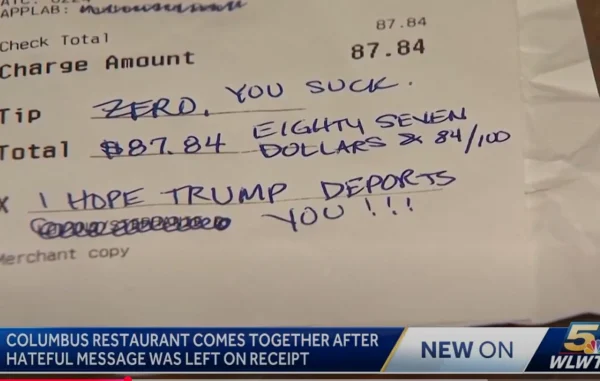 APPLAB:
87.84
Check Total
Charge Amount 87.84
Tip ZERO, YOU SUCK.
Total $87.84 EIGHTY SEVEN
DOLLARS & 84/100
X I HOPE TRUMP DEPORTS
YOU!!!
Merchant copy
COLUMBUS RESTAURANT COMES TOGETHER AFTER
HATEFUL MESSAGE WAS LEFT ON RECEIPT
NEW ON
5
WLWT